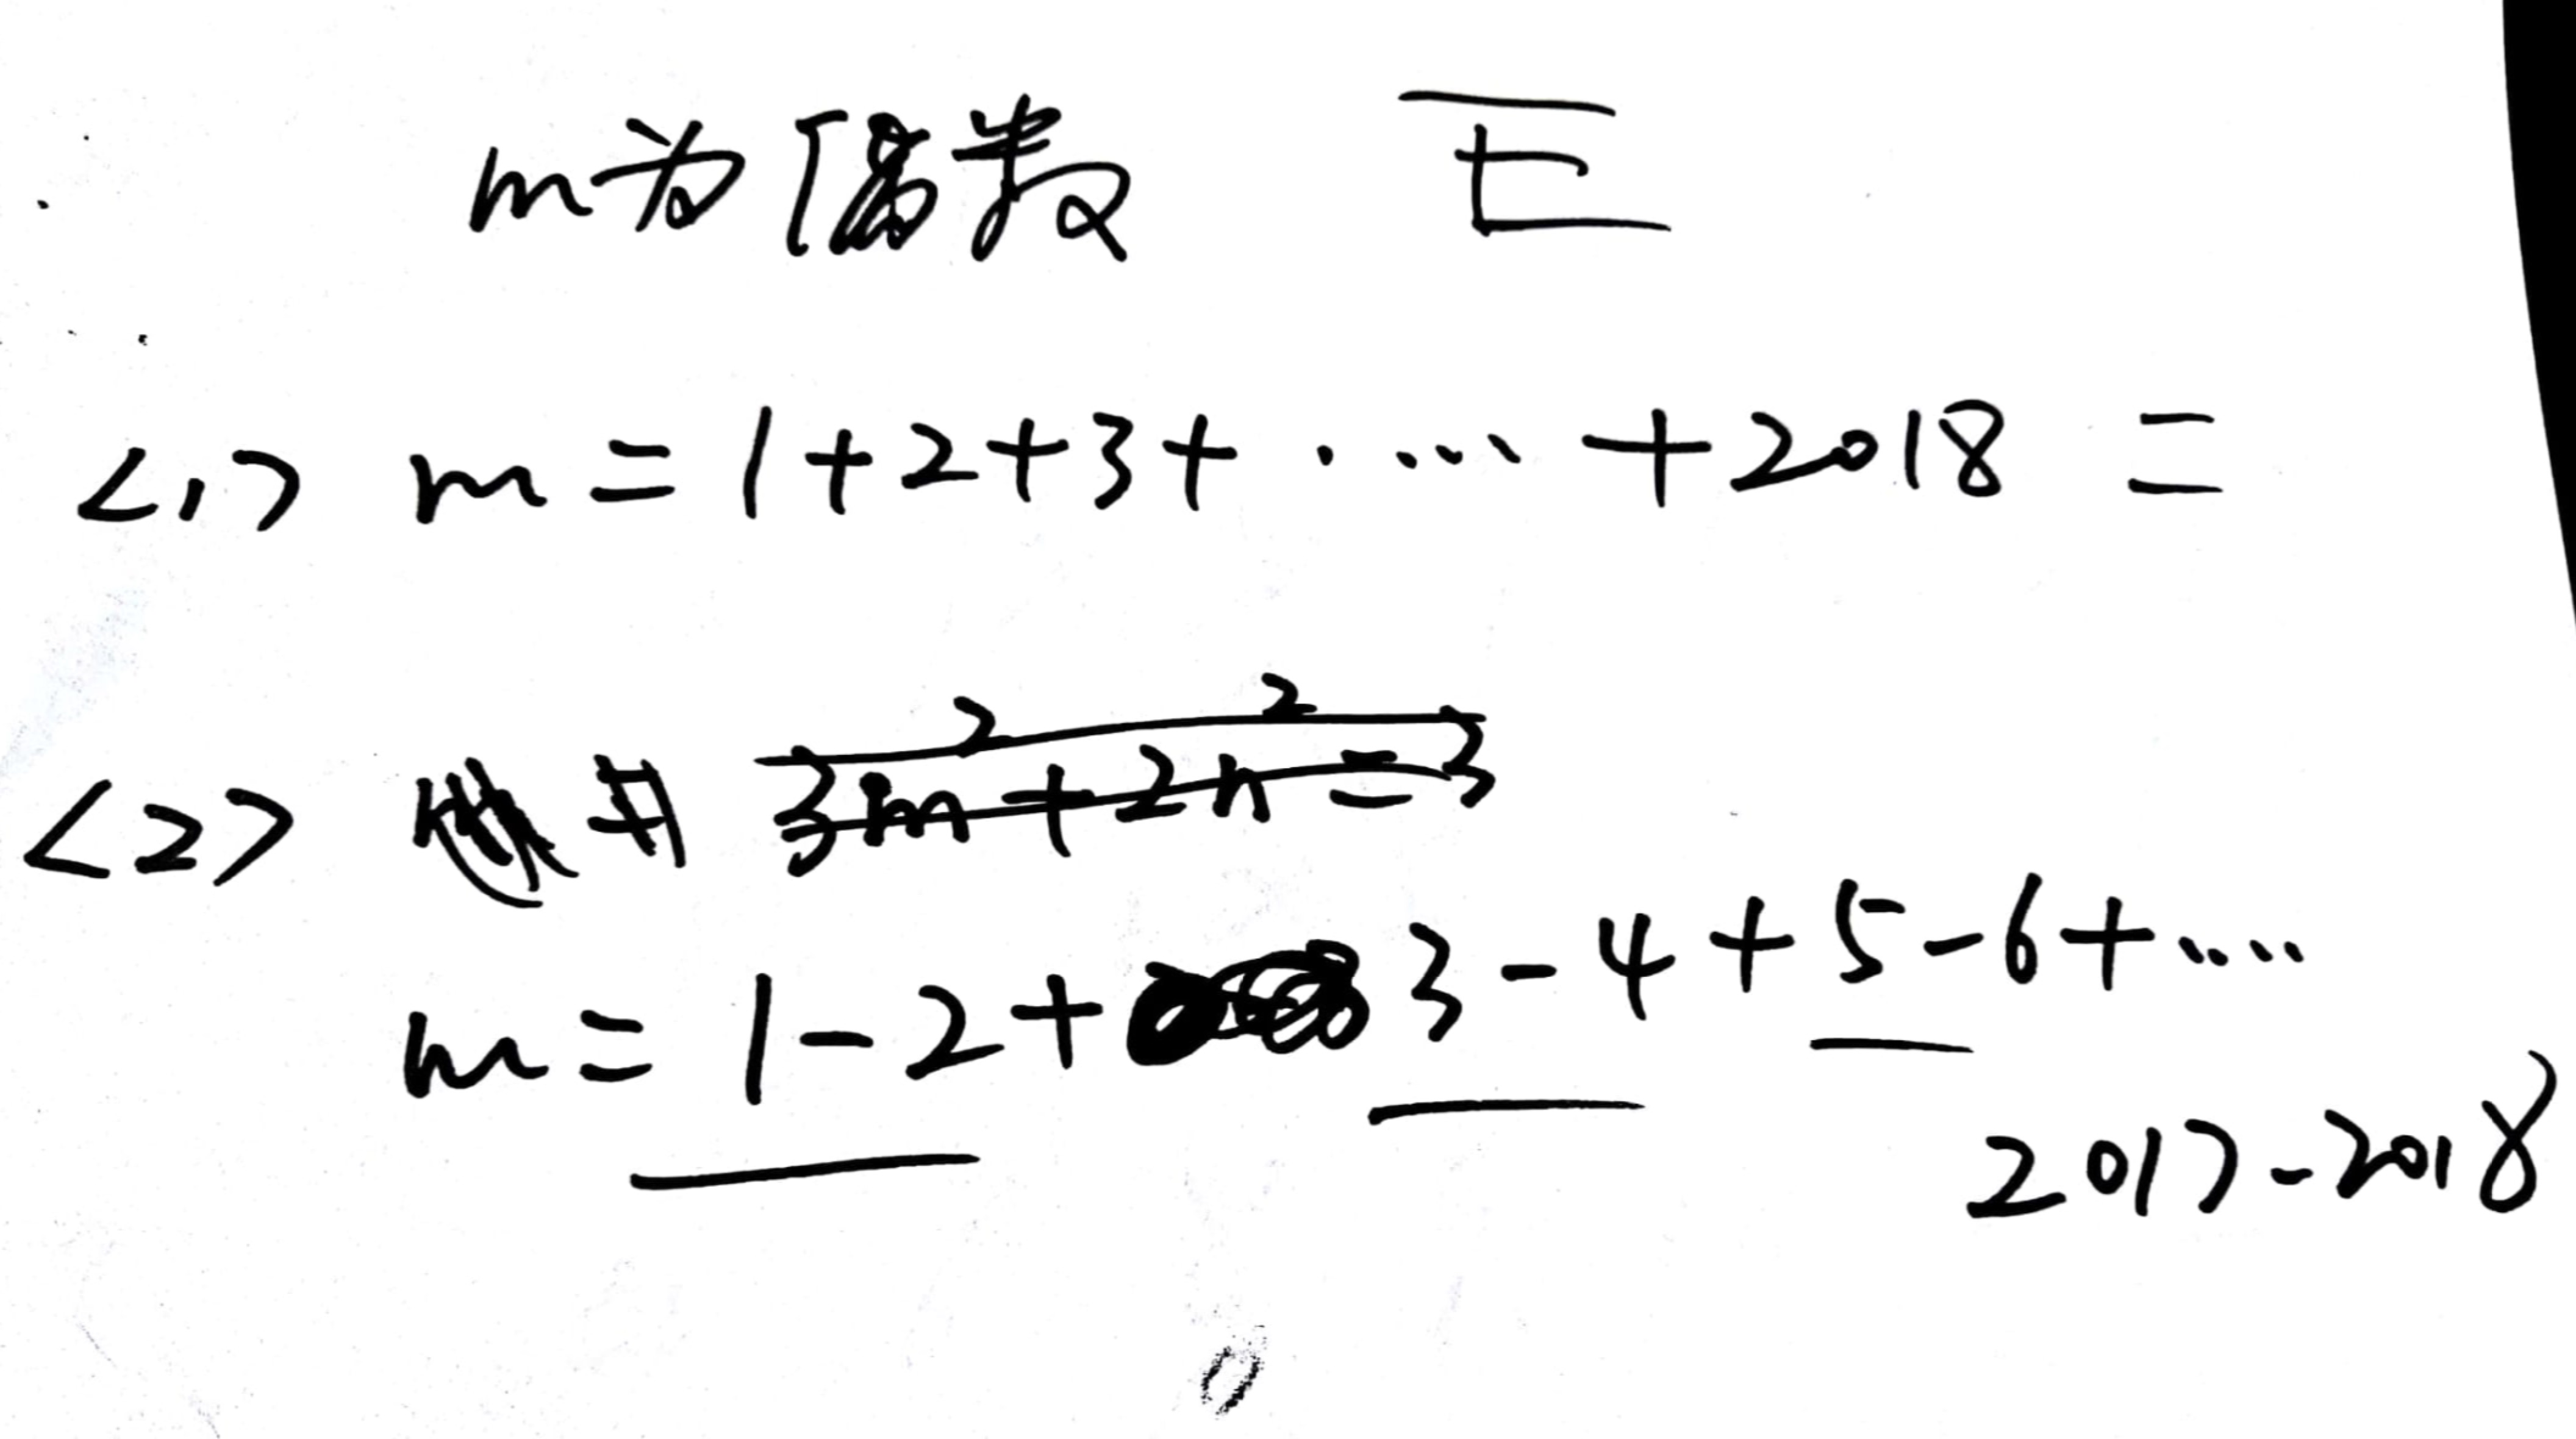 m为偶数 E
<1> m = 1+2+3+ ····· +2018 =
<2> 3m²+2n²=3
m = 1-2+ 3-4+5-6+ ·····
2017-2018